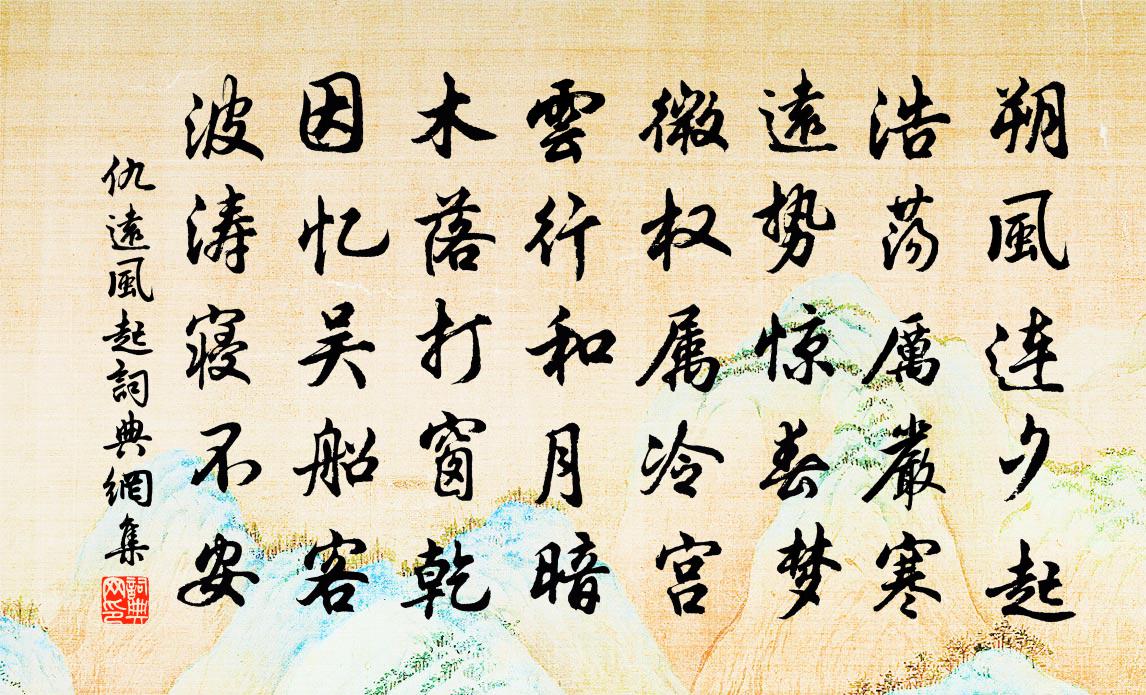 朔風连夕起
浩荡厲嚴寒
遠势惊春梦
微权属冷宫
雲行和月暗
木落打窗乾
因忆吴船客
波涛寝不安
仇遠風起詞典網集
詞典